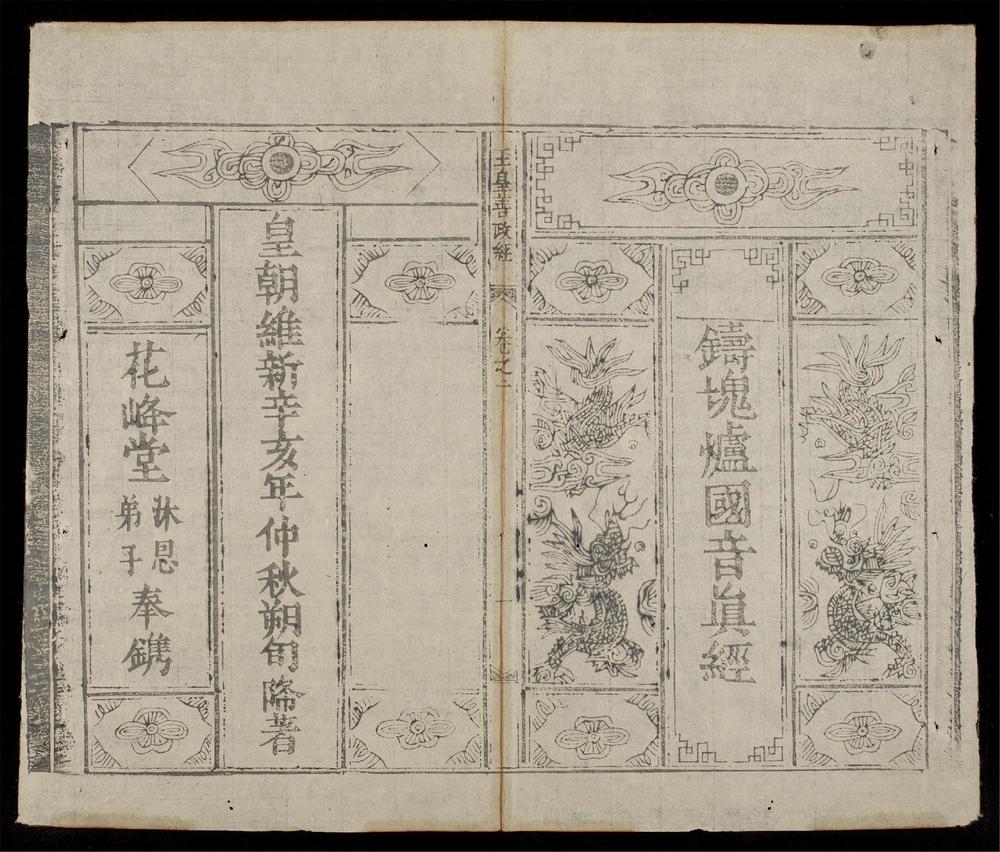 鑄塊爐國音眞經
玉皇善政經
卷之二
一
皇朝維新辛亥年仲秋朔旬降著
花峰堂沐恩弟子奉鐫